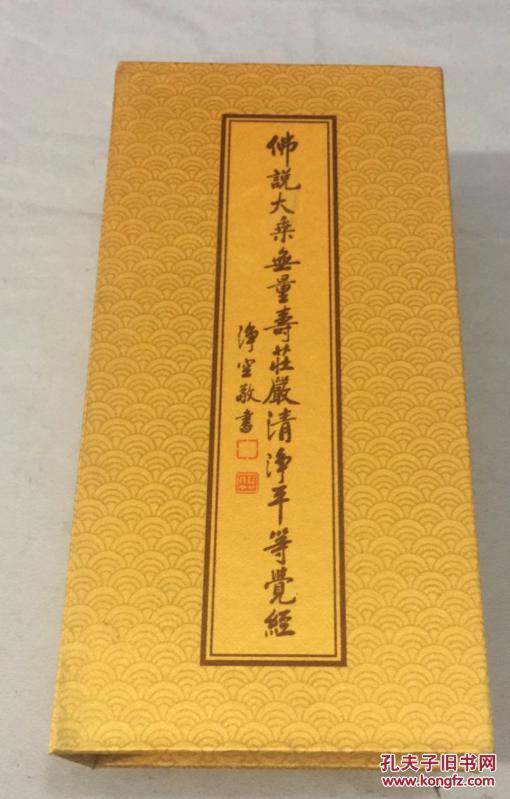 佛說大乘無量壽莊嚴清淨平等覺經
淨空敬書
孔夫子旧书网
www.kongfz.com